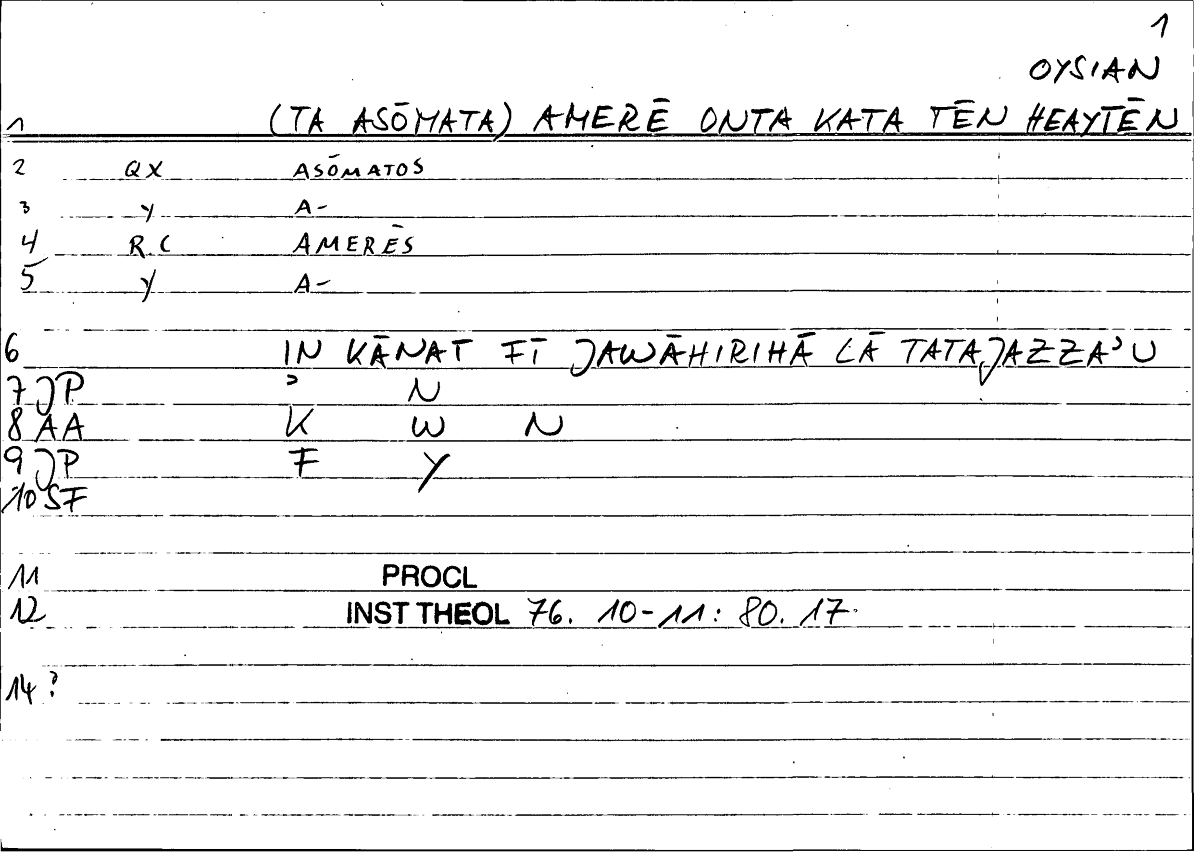 1
OYSIAN
1 (TA ASŌMATA) AMERĒ ONTA KATA TĒN HEAYTĒN
2 QX ASŌMATOS
3 Y A-
4 R.C AMERĒS
5 Y A-
6 IN KĀNAT FĪ JAWĀHIRIHĀ LĀ TATAJAZZAʾU
7 JP ʾ N
8 AA K W N
9 JP F Y
10 SF
11 PROCL
12 INST THEOL 76. 10-11: 80. 17.
14 ?